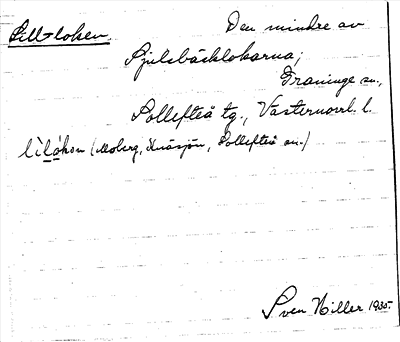 Lill-loken
Den mindre av
Spjulsbäcklokarna;
Graninge sn.,
Sollefteå tg., Västernorrl. l.
lìlo̱kon (Moberg, Knäsjön, Sollefteå sn.)
Sven Hiller 1935.